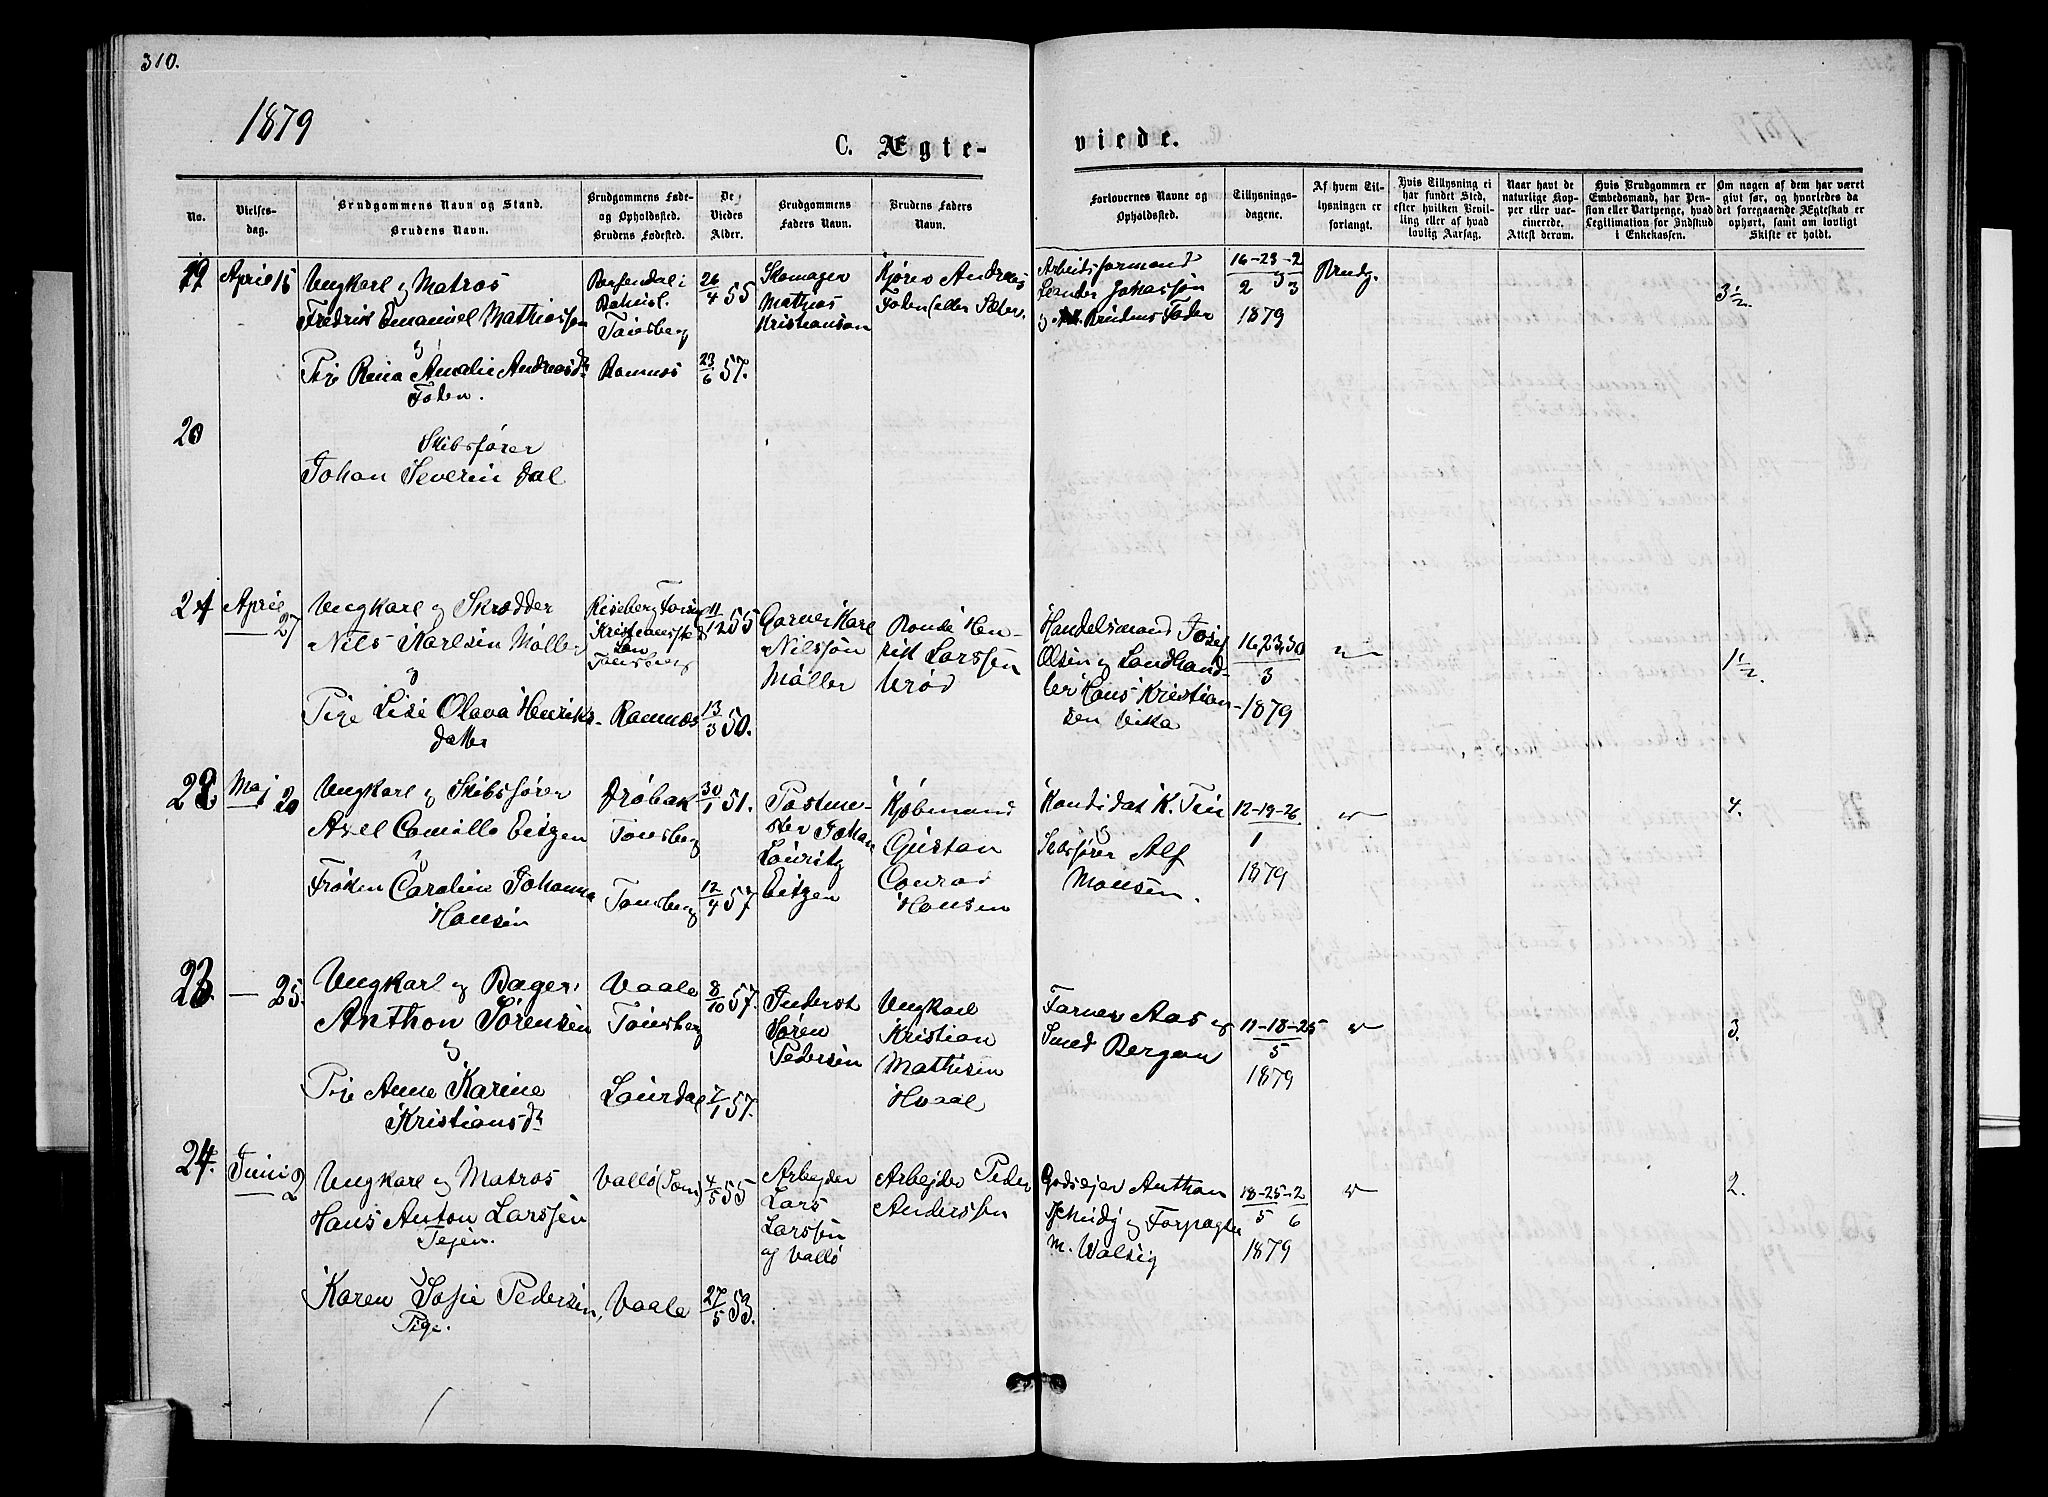 310.
1879
C. Ægte-
viede.
No.
Vielses-
dag.
Brudgommens Navn og Stand.
Brudens Navn.
Brudgommens Føde-
og Opholdssted.
Brudens Fødested.
De
Viedes
Alder.
Brudgommens
Faders Navn.
Brudens Faders
Navn.
Forlovernes Navne og
Opholdssted.
Tillysnings-
dagene.
Af hvem Til-
lysningen er
forlangt.
Hvis Tillysning ei
har fundet Sted,
efter hvilken Bevil-
ling eller af hvad
lovlig Aarsag.
Naar havt de
naturlige Kop-
per eller vac-
cinerede.
Attest derom.
Hvis Brudgommen er
Embedsmand, har Pen-
sion eller Vartpenge, hvad
Legitimation for Indskud
i Enkekassen.
Om nogen af dem har været
givt før, og hvorledes da
det foregaaende Ægteskab er
ophørt, samt om lovligt
Skifte er holdt.
19
April 15
Ungkarl og Matros
Fredrik Emanuel Mathiassen
og
Pige Rina Amalie Andreasdr
Foden.
Bahusl.
Tønsberg
Ramnes
26/4 55
23/6 57.
Skomager
Mathias
Kristiansen
Andreas
Foden (eller Sæter
Arbeidsformand
Leander Johassøn
og Brudens Fader
16-23-2
2 3
1879
Brudg.
3 1/2.
20
Skibsfører
Johan Severin Dal
21
April
27
Ungkarl og Skrædder
Nils Karlsen Møller
og
Pige Lise Olava Henriks-
datter
Kristiansstad
Län
Tønsberg
Ramnæs
11/12 55
13/3 50.
Garver Karl
Nilssøn
Møller
Bonde Hen-
rik Larssøn
Urød
Handelsmand Josef
Olsen og Landhand-
ler Hans Kristian-
sen Vika
16,23,30
3
1879
"
1 1/2.
22
Maj 20
Ungkarl og Skibsfører
Axel Camillo Eitzen
og
Frøken Caroline Johanna
Hansen
Drøbak
Tønsberg
Tønsberg
30/1 51.
12/4 57
Postme-
ster Johan
Lauritz
Eitzen
Kjøbmand
Gustav
Conrad
Hansen
Kandidat K.
og
Skibsfører Alf
Monsen.
12-19-26
1
1879
"
4.
23.
— 25.
Ungkarl og Bager
Anthon Sørensen
og
Pige Anne Karine
Kristiansdr
Vaale
Tønsberg
Laurdal
8/10 57.
7/1 57.
Inderst
Søren
Pedersen
Ungkarl
Kristian
Mathisen
Hvaal
Farver Aas og
Smed Bergan
11-18-25
5
1879
"
3.
24.
Juni 2
Ungkarl og Matros
Hans Anton Larssen
Tejen.
og
Karen Sofie Pedersen,
Pige.
Vallø (Sem)
Vaale
4/5 55
27/5 53.
Arbejder
Lars
Larssen
af Vallø
Arbejder Peder
Anderssen
Godsejer Anthon
og Forpagter
M. Walseg
18-25-2
5 6
1879
"
2.